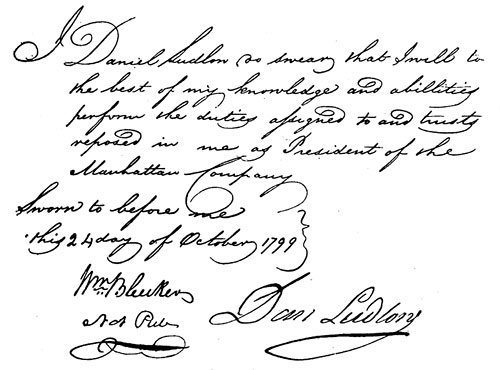 I Daniel Ludlow do swear that I will to
the best of my knowledge and abillities
perform the duties assigned to and trusts
reposed in me as President of the
Manhattan Company
Sworn to before me
this 24 day of October 1799
Wm. Bleecker
Not Pub
Dan Ludlow